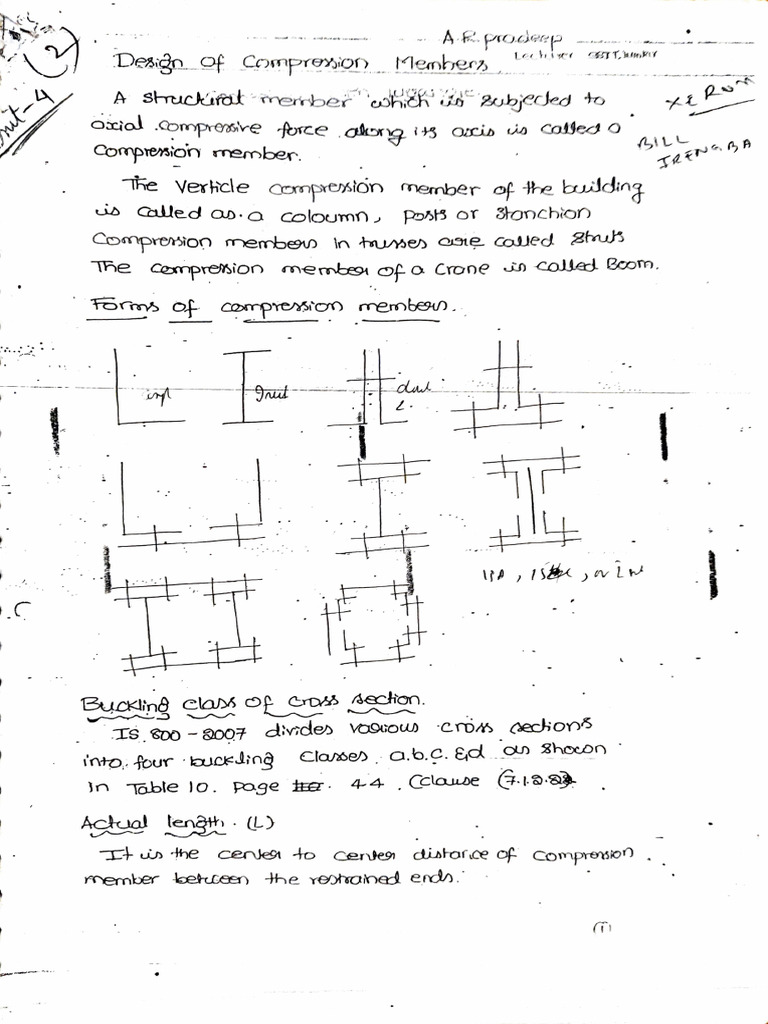 A R pradeep
(2)
Design of Compression Members
Unit-4
A structural member which is subjected to
axial compressive force along its axis is called a
compression member.
XEROX
BILL
The Verticle compression member of the building
is called as a coloumn, posts or stanchion
Compression members in trusses are called struts
The compression member of a Crane is called Boom.
Forms of compression members.
Buckling class of cross section.
IS 800-2007 divides various cross sections
into four buckling classes a.b.c.&d as shown
in Table 10. page 44. (clause (7.1.2.2)
Actual length. (L)
It is the center to center distance of compression
member between the restrained ends.
(1)